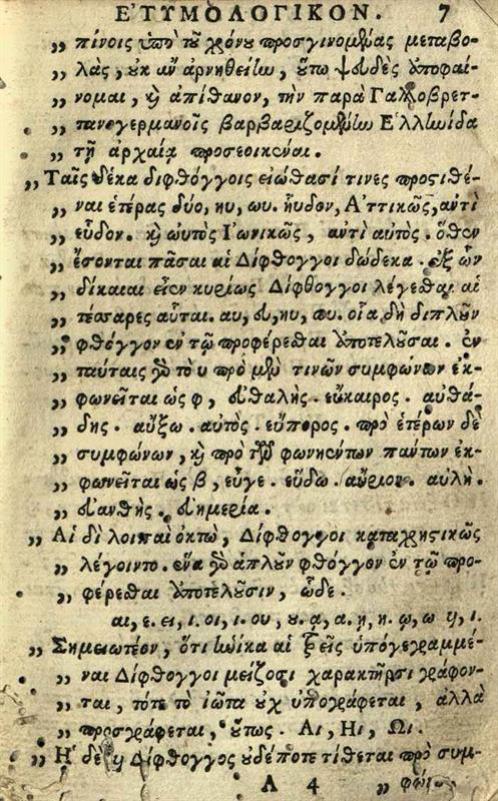 ΕΤΥΜΟΛΟΓΙΚΟΝ. 7
„ πίνοις ὑπὸ τοῦ χρόνου προσγινομένας μεταβο-
„ λὰς, οὐκ ἂν ἀρνηθείην, οὕτω ψευδὲς ὑποφαί-
„ νομαι, καὶ ἀπίθανον, τὴν παρὰ Γαλλοβρετ-
„ τανογερμανοῖς βαρβαριζομένην Ἑλληνίδα
„ τῇ ἀρχαίᾳ προσεοικέναι.
„ Ταῖς δέκα διφθόγγοις εἰώθασί τινες προστιθέ-
„ ναι ἑτέρας δύο, ηυ, ωυ. ηὗδον, Ἀττικῶς, αὐτὶ
„ εὗδον. καὶ ωὑτὸς Ἰωνικῶς, αὐτὶ αὐτός. ὅθεν
„ ἔσονται πᾶσαι αἱ Δίφθογγοι δώδεκα. ἐξ ὧν
„ δίκαιαι εἰσὶν κυρίως Δίφθογγοι λέγεσθαι αἱ
„ τέσσαρες αὗται. αυ, ευ, ηυ, ωυ. οἷα δὴ διπλοῦν
„ φθόγγον ἐν τῷ προφέρεσθαι ἀποτελοῦσαι. ἐν
„ ταύταις γὰρ τὸ υ πρὸ μὲν τινῶν συμφώνων ἐκ-
„ φωνεῖται ὡς φ, εὐθαλής. εὔκαιρος. αὐθά-
„ δης. αὔξω. αὐτός. εὔπορος. πρὸ ἑτέρων δὲ
„ συμφώνων, καὶ πρὸ τῶν φωνηέντων πάντων ἐκ-
„ φωνεῖται ὡς β, εὖγε. εὕδω. αὔριον. αὐλή.
„ εὐανθής. εὐημερία.
„ Αἱ δὲ λοιπαὶ ὀκτὼ, Δίφθογγοι καταχρηστικῶς
„ λέγοιντο. ἕνα γὰρ ἁπλοῦν φθόγγον ἐν τῷ προ-
„ φέρεσθαι ἀποτελοῦσιν, ὧδε.
αι, ε. ει, ι. οι, ι. ου, υ. ᾳ, α. ῃ, η. ῳ, ω υι, ι.
„ Σημειωτέον, ὅτι ἡνίκα αἱ τρεῖς ὑπόγεγραμμέ-
„ ναι Δίφθογγοι μείζοσι χαρακτῆρσι γράφον-
„ ται, τότε τὸ ἰῶτα οὐχ ὑπογράφεται, ἀλλὰ
„ προσγράφεται, οὕτως. Αι, Ηι, Ωι.
„ Ἡ δὲ υι Δίφθογγος οὐδέποτε τίθεται πρὸ συμ-
A 4 „ φώ-